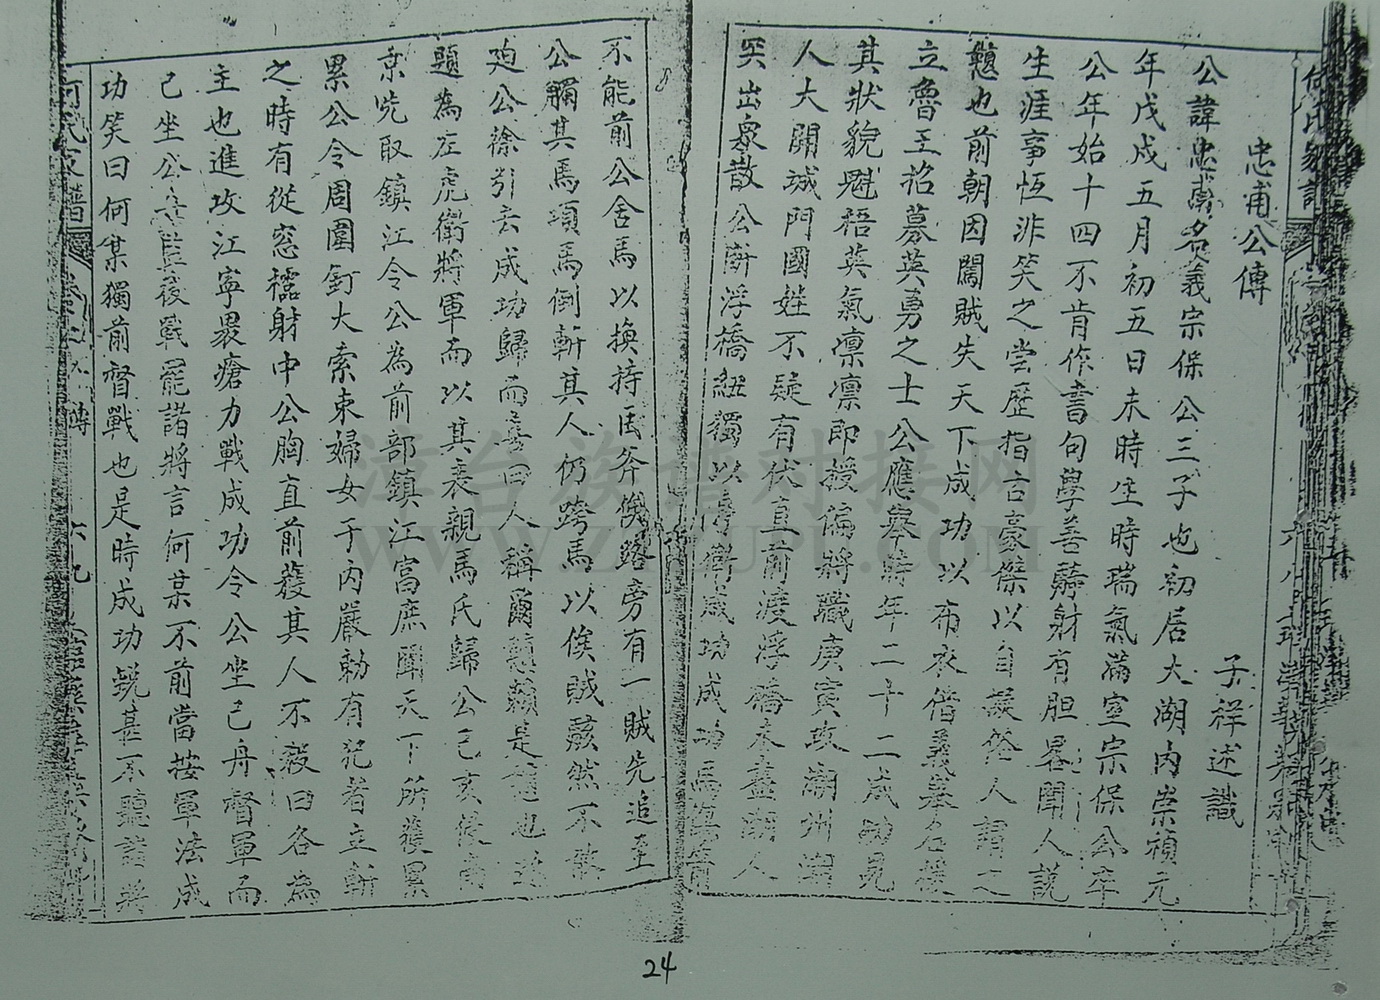 忠甫公傳
子祥述識
公諱忠甫名義宗保公三子也初居大湖內崇禎元
年戊戌五月初五日未時生時瑞氣滿室宗保公卒
公年始十四不肯作書句學善騎射有胆畧聞人說
生涯事恆非笑之嘗歷指古豪傑以自擬俗人謂之
戇也前朝因闖賊失天下成功以布衣借義舉名援
立魯王招募英勇之士公應舉時年二十二成功見
其狀貌魁梧英氣凛凛即授偏將職庚寅攻潮州潮
人大開城門國姓不疑有伏直前渡浮橋未盡潮人
突出衆散公斷浮橋紐獨以身衛成功成功馬
不能前公舍馬以換持斧俟路旁有一賊先追至
公觸其馬項馬倒斬其人仍跨馬以俟賊駭然不敢
追公徐引去成功歸而喜曰人稱爾戇賴是戇也
題為左虎衛將軍而以其表親馬氏歸公己亥侵南
京先取鎮江令公為前部鎮江富庶聞天下所獲累
累公令周圍釘大索束婦女于內嚴勅有犯者立斬
之時有從窓檽射中公胸直前獲其人不殺曰各為
主也進攻江寧畏瘡力戰成功令公坐己舟督軍而
己坐公舟後戰罷諸將言何某不前當按軍法成
功笑曰何某獨前督戰也是時成功銳甚不聽諸將
何氏家譜
六九
24
漳台族譜对接网
WWW.ZTZUPU.COM